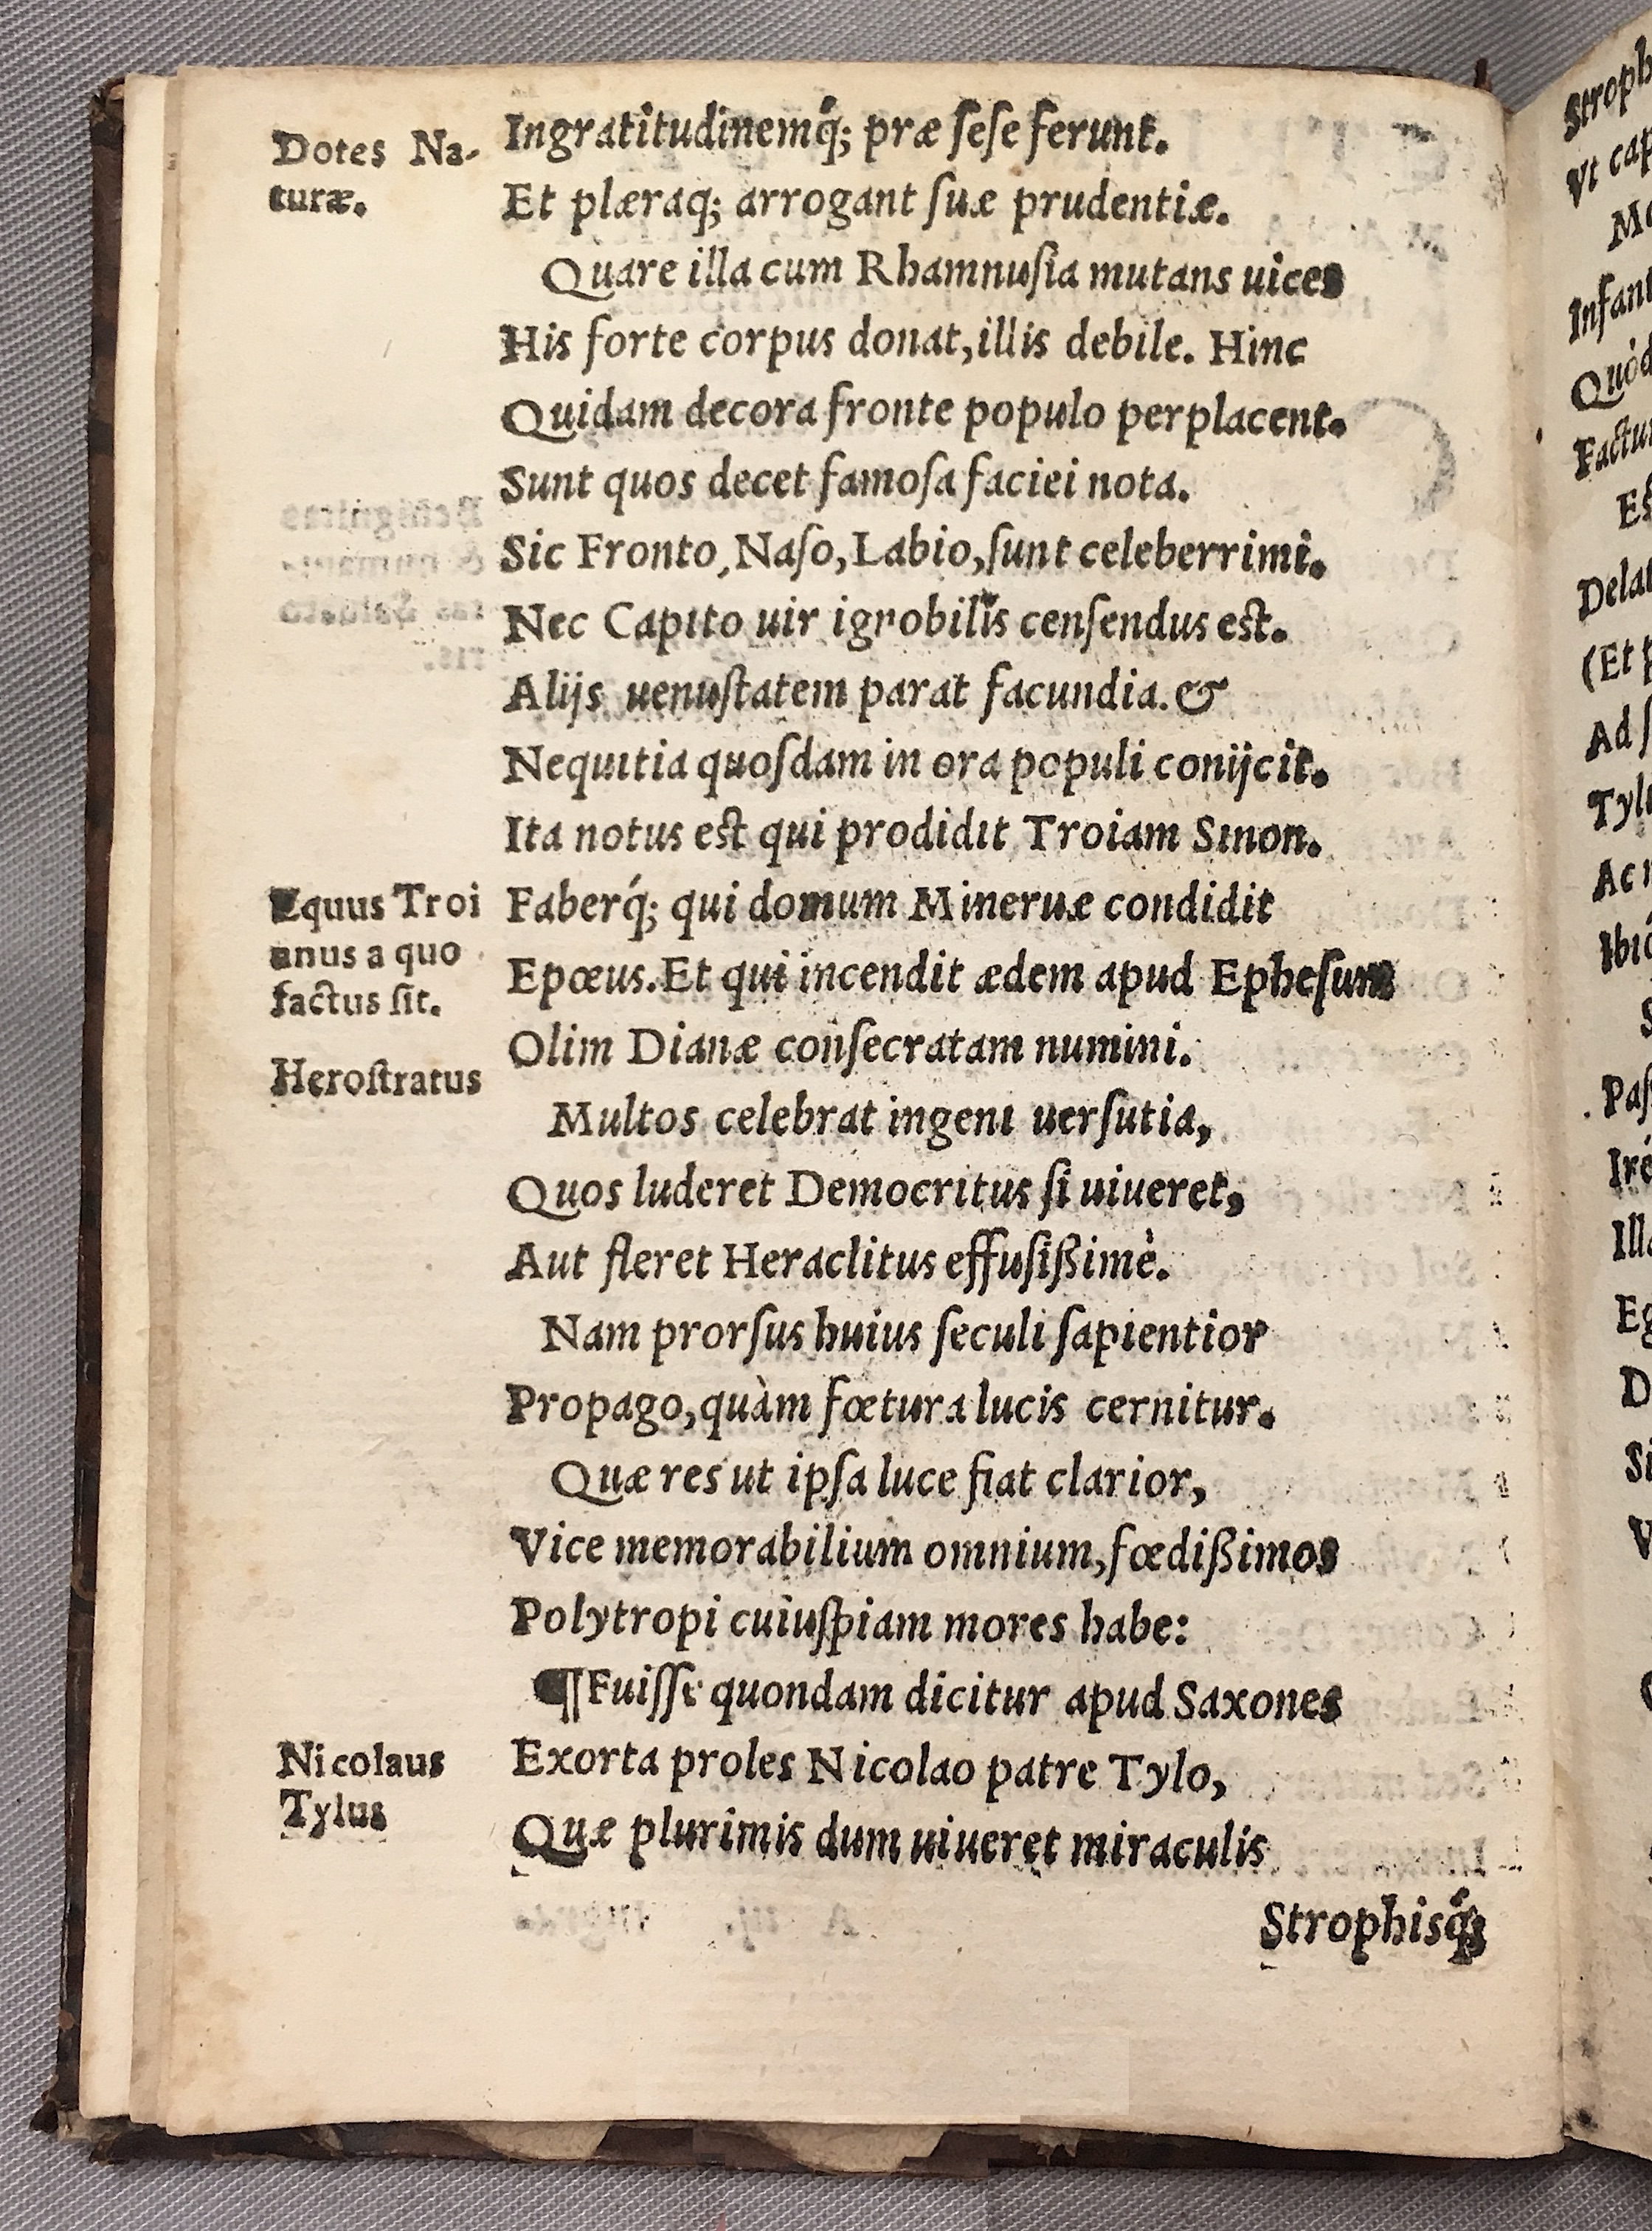 Dotes Na-
turæ.
Ingratitudinemq́; præ ſeſe ferunt.
Et plæraq; arrogant ſuæ prudentiæ.
Quare illa cum Rhamnuſia mutans uices
His forte corpus donat, illis debile. Hinc
Quidam decora fronte populo perplacent.
Sunt quos decet famoſa faciei nota.
Sic Fronto, Naſo, Labio, ſunt celeberrimi.
Nec Capito uir ignobilis cenſendus est.
Alijs uenuſtatem parat facundia. &
Nequitia quoſdam in ora populi conijcit.
Ita notus est qui prodidit Troiam Sinon.
Equus Troi
anus a quo
factus ſit.
Faberq́; qui domum Mineruæ condidit
Epœus. Et qui incendit ædem apud Epheſum
Heroſtratus
Olim Dianæ conſecratam numini.
Multos celebrat ingeni uerſutia,
Quos luderet Democritus ſi uiueret,
Aut fleret Heraclitus effuſißimè.
Nam prorſus huius ſeculi ſapientior
Propago, quàm fœtura lucis cernitur.
Quæ res ut ipſa luce fiat clarior,
Vice memorabilium omnium, fœdißimos
Polytropi cuiuſpiam mores habe:
¶ Fuiſſe quondam dicitur apud Saxones
Nicolaus
Tylus
Exorta proles Nicolao patre Tylo,
Quæ plurimis dum uiueret miraculis
Strophisq́;